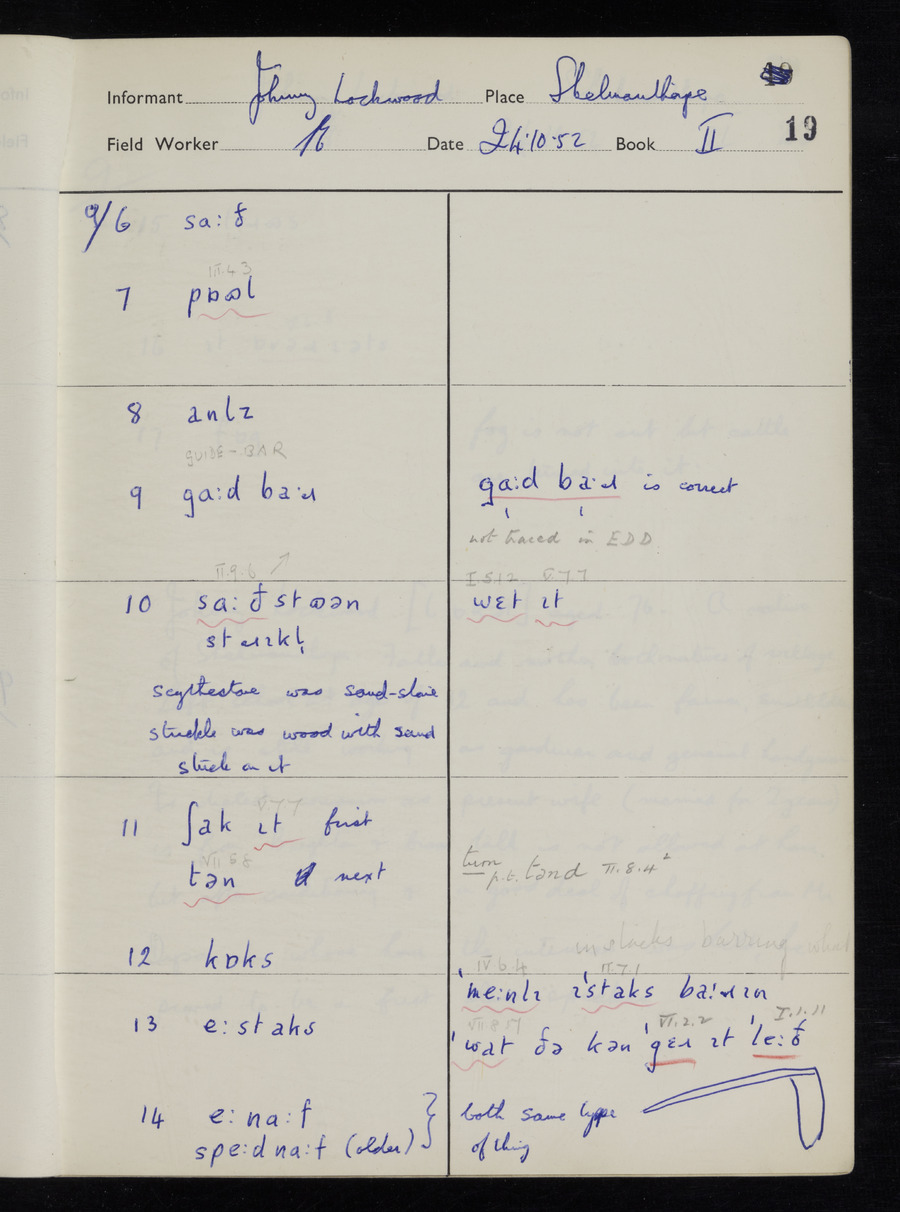 Informant Johnny Lockwood Place Skelmanthorpe
19
Field Worker Date 24·10·52 Book II
9/6 sa:ð
III.4.3
7 pɒʊl
8 anlɪ
GUIDE-BAR
9 ga:d ba:ɹ
ga:d ba:ɹ is correct
not traced in EDD
II.9.6
I.5.12 V.7.7
10 sa:ðstʊən
wɛt ɪt
stɹɪkl̩
scythestone was sand-stone
strickle was wood with sand
stuck on it
V.7.7
11 ʃak ɪt first
VII.6.8
tən next
turn
p.t. tənd II.8.4²
in stacks barring what
12 kɒks
IV.6.4 II.7.1
ˈme:nlɪ ɪˈstaks ba:ɹɪn
13 e:staks
VII.8.17 VI.2.2 I.1.11
ˈwat ðə kən ˈgɛɹ ɪt ˈle:ð
14 e:na:f
both same type
spe:dna:f (older)
of thing